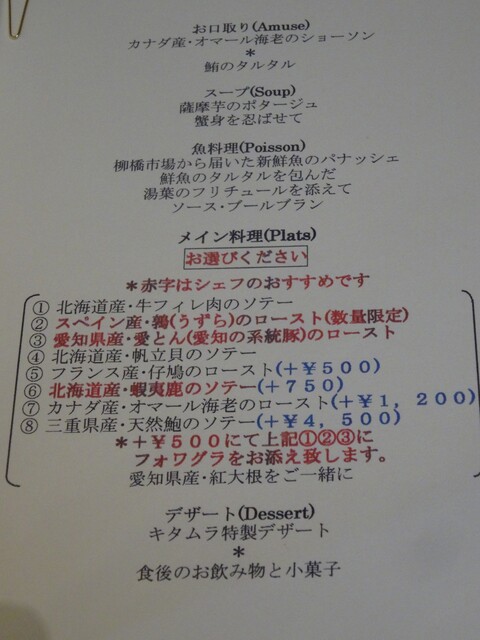 お口取り(Amuse)
カナダ産・オマール海老のショーソン
*
鮪のタルタル
スープ(Soup)
薩摩芋のポタージュ
蟹身を忍ばせて
魚料理(Poisson)
柳橋市場から届いた新鮮魚のパナッシェ
鮮魚のタルタルを包んだ
湯葉のフリチュールを添えて
ソース・ブールブラン
メイン料理(Plats)
お選びください
*赤字はシェフのおすすめです
① 北海道産・牛フィレ肉のソテー
② スペイン産・鶉(うずら)のロースト(数量限定)
③ 愛知県産・愛とん(愛知の系統豚)のロースト
④ 北海道産・帆立貝のソテー
⑤ フランス産・仔鳩のロースト(+¥500)
⑥ 北海道産・蝦夷鹿のソテー(+750)
⑦ カナダ産・オマール海老のロースト(+¥1,200)
⑧ 三重県産・天然鮑のソテー(+¥4,500)
*+¥500にて上記①②③に
フォワグラをお添え致します。
愛知県産・紅大根をご一緒に
デザート(Dessert)
キタムラ特製デザート
*
食後のお飲み物と小菓子